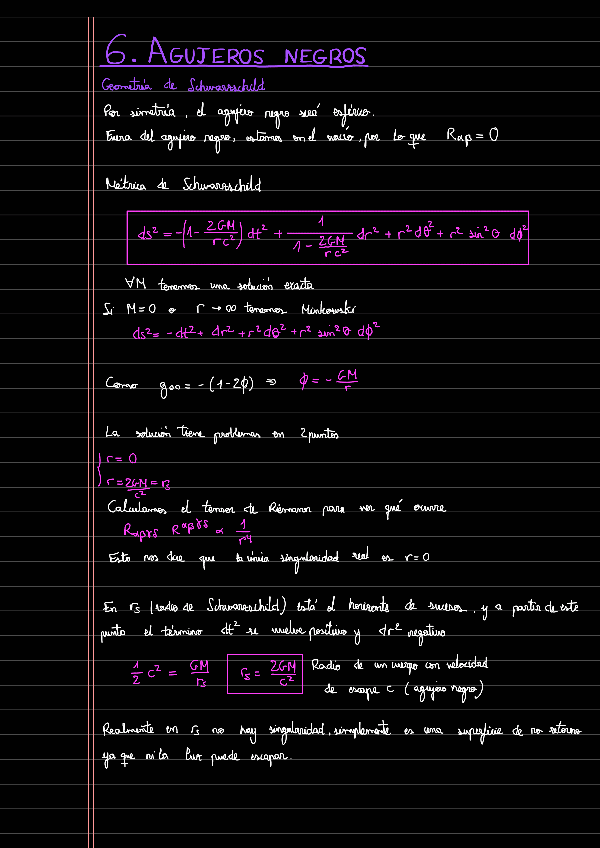 6. AGUJEROS NEGROS
Geometría de Schwarzschild
Por simetría, el agujero negro será esférico.
Fuera del agujero negro, estamos en el vacío, por lo que Rαβ = 0
Métrica de Schwarzschild
ds² = -(1 - 2GM/rc²) dt² + 1/(1 - 2GM/rc²) dr² + r² dθ² + r² sin²θ dϕ²
∀M tenemos una solución exacta
Si M=0 o r → ∞ tenemos Minkowski
ds² = -dt² + dr² + r² dθ² + r² sin²θ dϕ²
Como g₀₀ = -(1-2ϕ) ⇒ ϕ = - GM/r
La solución tiene problemas en 2 puntos
{ r = 0
r = 2GM/c² = rs
Calculamos el tensor de Riemann para ver qué ocurre
Rαβγδ R^αβγδ ∝ 1/r⁴
Esto nos dice que la única singularidad real es r=0
En rs (radio de Schwarzschild) está el horizonte de sucesos, y a partir de este
punto el término dt² se vuelve positivo y dr² negativo
1/2 c² = GM/rs rs = 2GM/c² Radio de un cuerpo con velocidad
de escape c (agujero negro)
Realmente en rs no hay singularidad, simplemente es una superficie de no retorno
ya que ni la luz puede escapar.